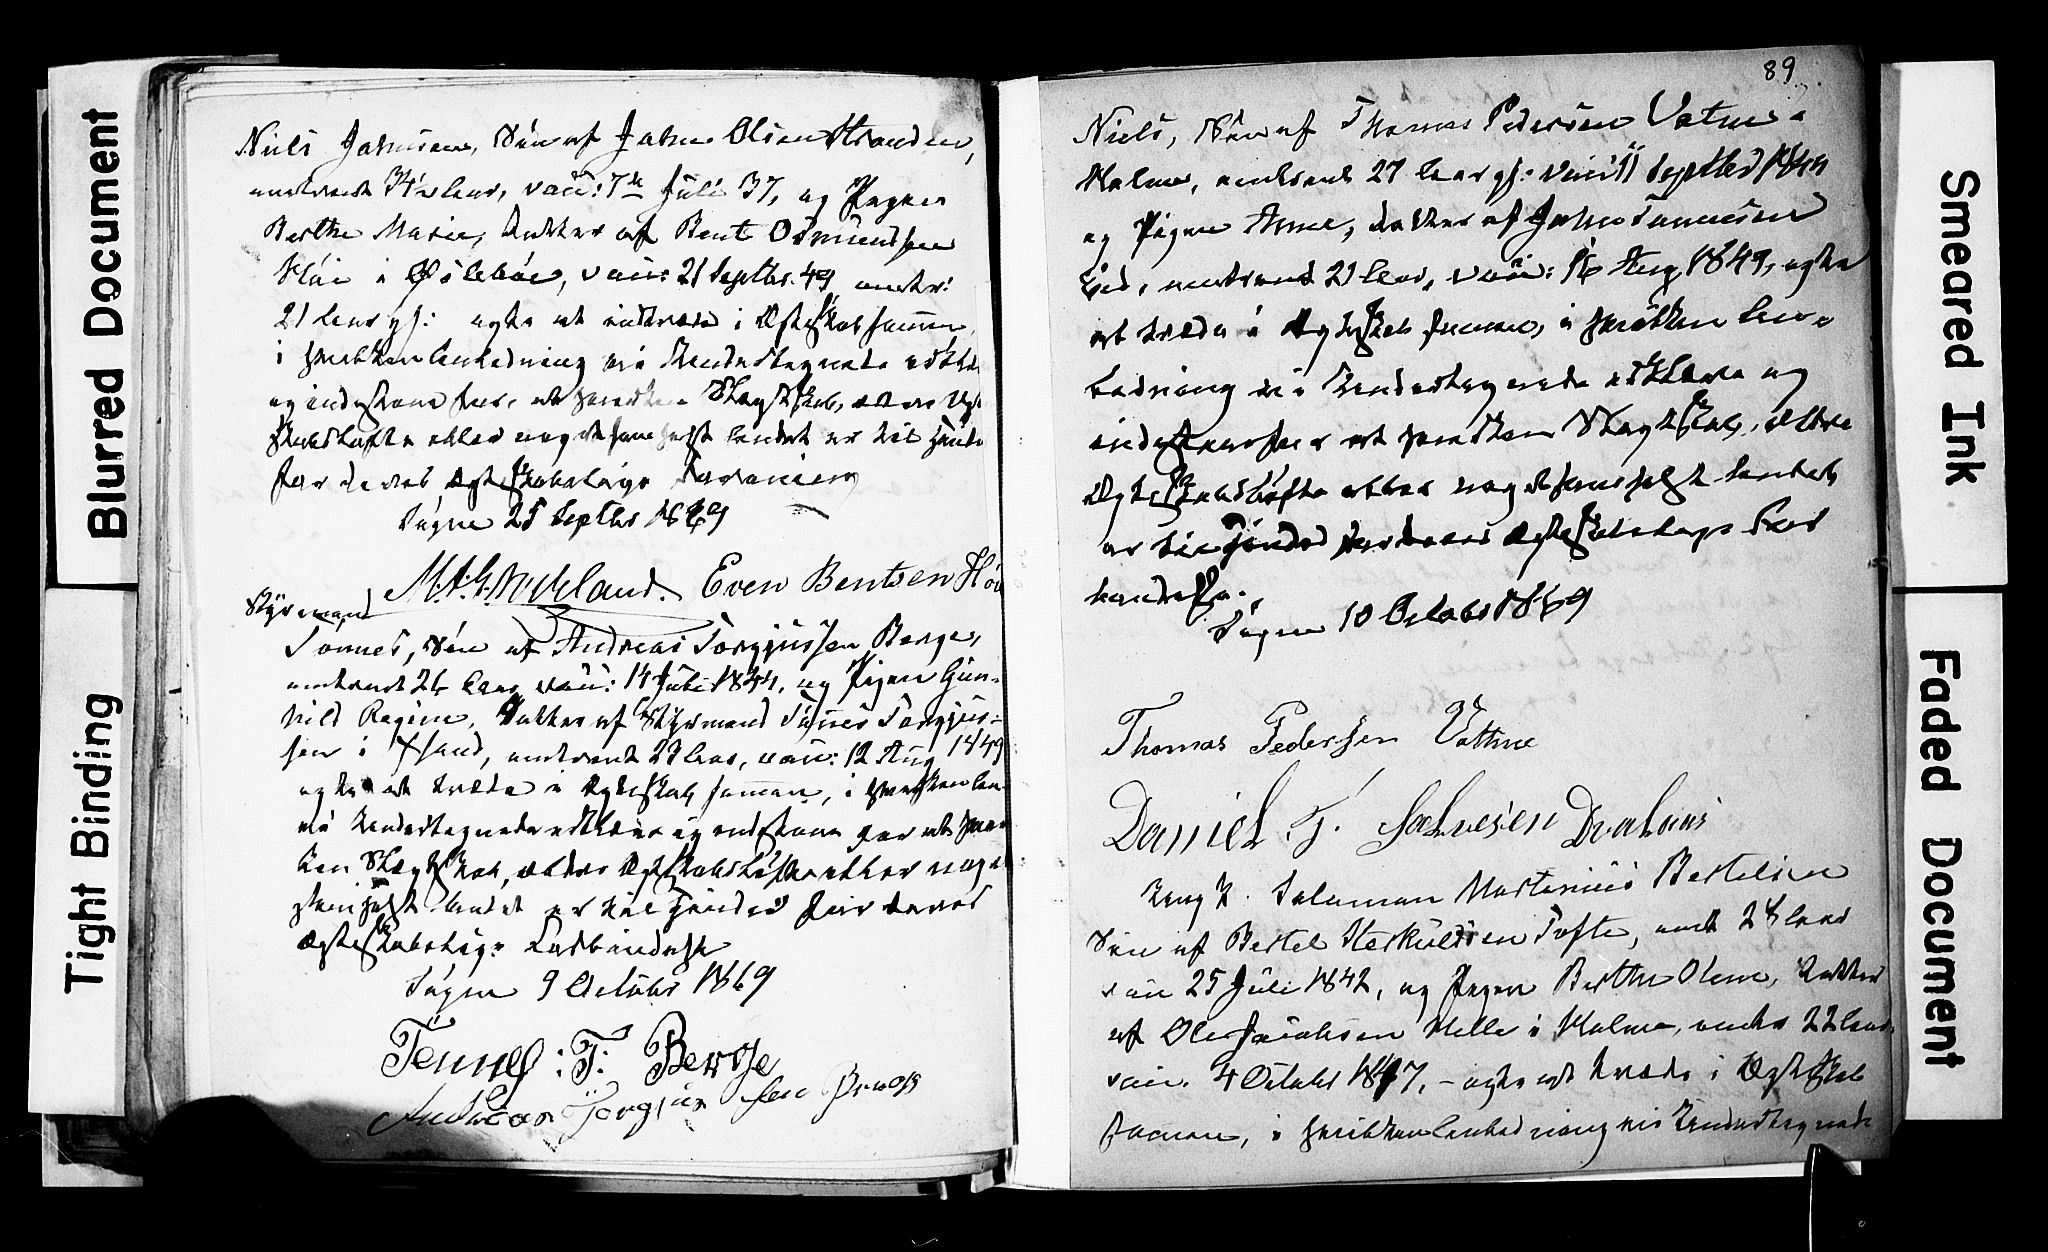 Blurred Document
Tight Binding
Niels Jahnsen, Søn af Jahn Olsen Stranden,
omtrent 34½ aar, vac: 7de Juli 37, og Pigen
Berthe Marie, Datter af Bent Osmundsen
Høie i Øslebøe, vac: 21 Septbr. 49 omtr:
21 aar gl: agte at indtræde i Ægteskab sammen
i hvilken Anledning vi Undertegnede erklære
og indestaae for, at hverken Slægtskab, ældre Ægte
skabsløfte eller noget somhelst andet er til Hinder
for deres Ægteskabelige Forening
Søgne 25 Septbr 1869
Even Bentsen Høie
Styrmand
Tønnes, Søn af Andreas Torgjussen Berge,
omtrent 26 aar, vac: 14 Juli 1844, og Pigen Gun-
hild Regine, Datter af Styrmand Tønnes Torgjus-
sen i Xsand, omtrent 21 aar, vac: 12 Aug 1849
agte at træde i Ægteskab sammen, i hvilken An-
vi Undertegnede erklære og indestaae for at hver
ken Slægtskab, ældre Ægteskabsløfte eller noget
somhelst andet er til Hinder for deres
Ægteskabelige Forbindelse
Søgne 9 Octobr 1869
Tønnes: T: Berge
Andreas Torgjussen Berge
89
Niels, Søn af Thomas Pedersen Vatne-
Holme, omtrent 27 aar gl: vac: 11 Septbr 1842
og Pigen Anne, Datter af Jahn Tønnesen
Eid, omtrent 21 aar, vac: 16 Aug 1849, agte
at træde i Ægteskab sammen, i hvilken An-
ledning vi Undertegnede erklære og
indestaae for at hverken Slægtskab, ældre
Ægteskabsløfte eller noget somhelst andet
er til Hinder for deres Ægteskabelige For
bindelse.
Søgne 10 Octobr 1869
Thomas Pedersen Vattne
Daniel T. Salvesen
Ungk. Salamon Martinius Bertelsen
Søn af Bertel Herkuldsen Tofte, omt 28 aar
vac 25 Juli 1842, og Pigen Berthe Olene, Datter
af Ole Jacobsen Helle i Holme, omtr 22 aar
vac. 4 Octobr 1847, - agte at træde i Ægteskab
sammen, i hvilken Anledning vi Undertegnede
Smeared Ink
Faded Document